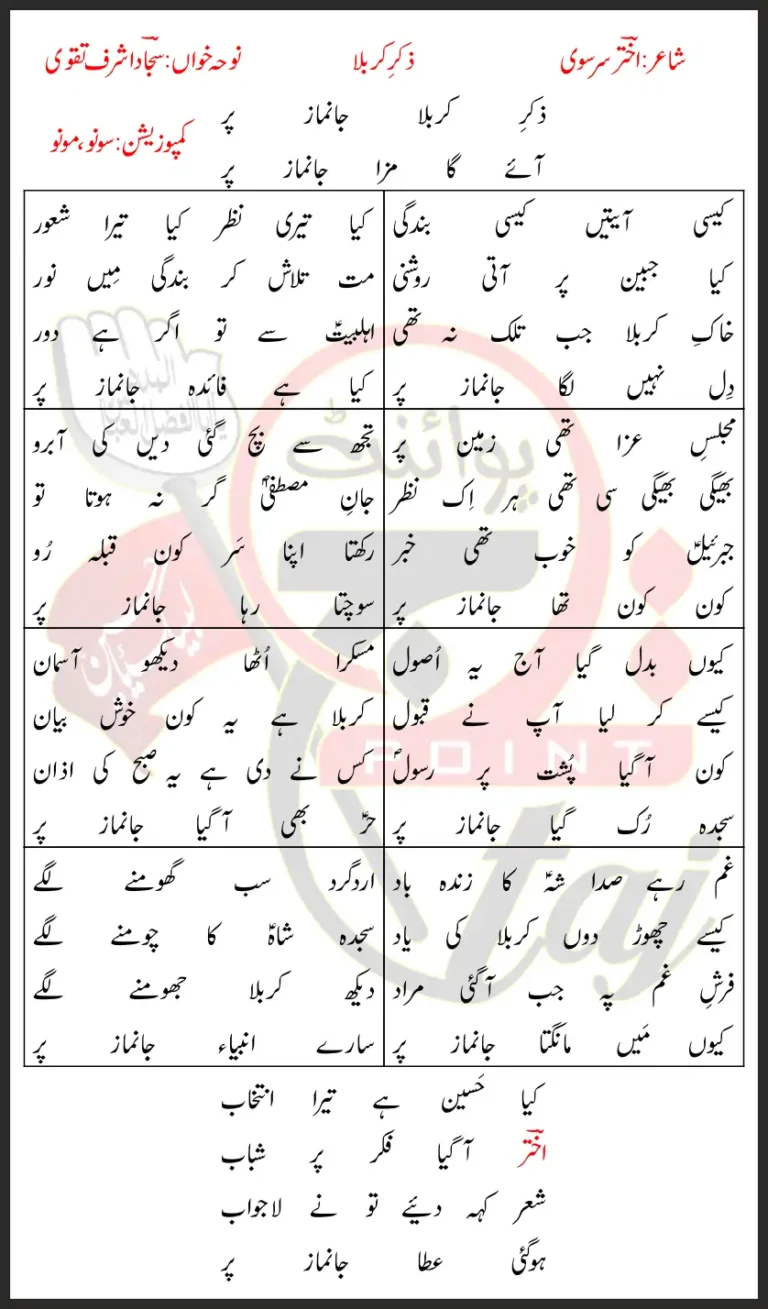 شاعر: اخترؔ سرسوی
ذکرِ کربلا
نوحہ خواں: سجادؔ اشرف تقوی
ذکرِ کربلا جانماز پر
کمپوزیشن: سونو، مونو
آئے گا مزا جانماز پر
کیسی آیتیں کیسی بندگی
کیا جبین پر آتی روشنی
خاکِ کربلا جب تلک نہ تھی
دِل نہیں لگا جانماز پر
کیا تیری نظر کیا تیرا شعور
مت تلاش کر بندگی مِیں نور
اہلبیتؑ سے تو اگر ہے دور
کیا ہے فائدہ جانماز پر
مجلسِ عزا تھی زمین پر
بھیگی بھیگی سی تھی ہر اِک نظر
جبرئیلؑ کو خوب تھی خبر
کون کون تھا جانماز پر
تجھ سے بچ گئی دیں کی آبرو
جانِ مصطفیٰؐ گر نہ ہوتا تو
رکھتا اپنا سَر کون قبلہ رُو
سوچتا رہا جانماز پر
کیوں بدل گیا آج یہ اُصول
کیسے کر لیا آپ نے قبول
کون آگیا پُشت پر رسولؐ
سجدہ رُک گیا جانماز پر
مسکرا اُٹھا دیکھو آسمان
کربلا ہے یہ کون خوش بیان
کس نے دی ہے یہ صبح کی اذان
حرؑ بھی آگیا جانماز پر
غم رہے صدا شہؑ کا زندہ باد
کیسے چھوڑ دوں کربلا کی یاد
فرشِ غم پہ جب آگئی مراد
کیوں مَیں مانگتا جانماز پر
اردگرد سب گھومنے لگے
سجدہ شاہؑ کا چومنے لگے
دیکھ کربلا جھومنے لگے
سارے انبیاء جانماز پر
کیا حَسین ہے تیرا انتخاب
اخترؔ آگیا فکر پر شباب
شعر کہہ دیئے تو نے لاجواب
ہوگئی عطا جانماز پر
پوائنٹ
POINT
taj